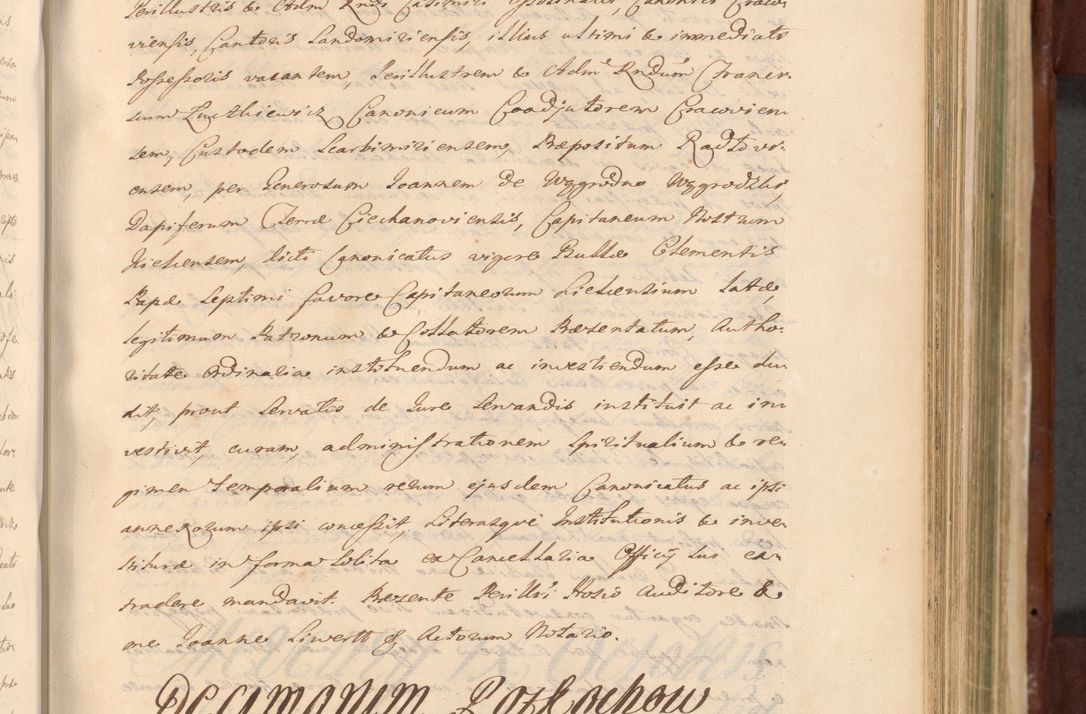 Perillustris & Adm Rndi Casimiri Ossolinski, Canonici Craco-
viensis, Cantoris Sandomiriensis, illius ultimi & immediati
Possessoris vacantem, Perillustrem & Admm Rndum Francis-
cum Canonicum Coadjutorem Cracovien
sem, Custodem Scarbimiriensem, Præpositum Radlovi-
ensem, per Generosum Joannem de Wygrodno
Dapiferum Terræ Ciechanoviensis, Capitaneum Nostrum
Kielcensem, dicti Canonicatus vigore Bullæ Clementis
Papæ Septimi favore Capitaneorum Kielcensium latæ,
legitimum Patronum & Collatorem Præsentatum, Autho-
ritate Ordinaria instituendum ac investiendum esse du
xit, prout servatis de Jure servandis instituit ac in
vestivit, curam, administrationem spiritualium & re-
gimen temporalium rerum ejusdem Canonicatus ac ipsi
annexorum ipsi concessit, Literasque Institutionis & inve-
stituræ in forma solita ex Cancellaria Officij sui ex-
tradere mandavit. Præsente Perillri Hosio Auditore &
me Joanne Siwerth Actorum Notario.
Decimarum